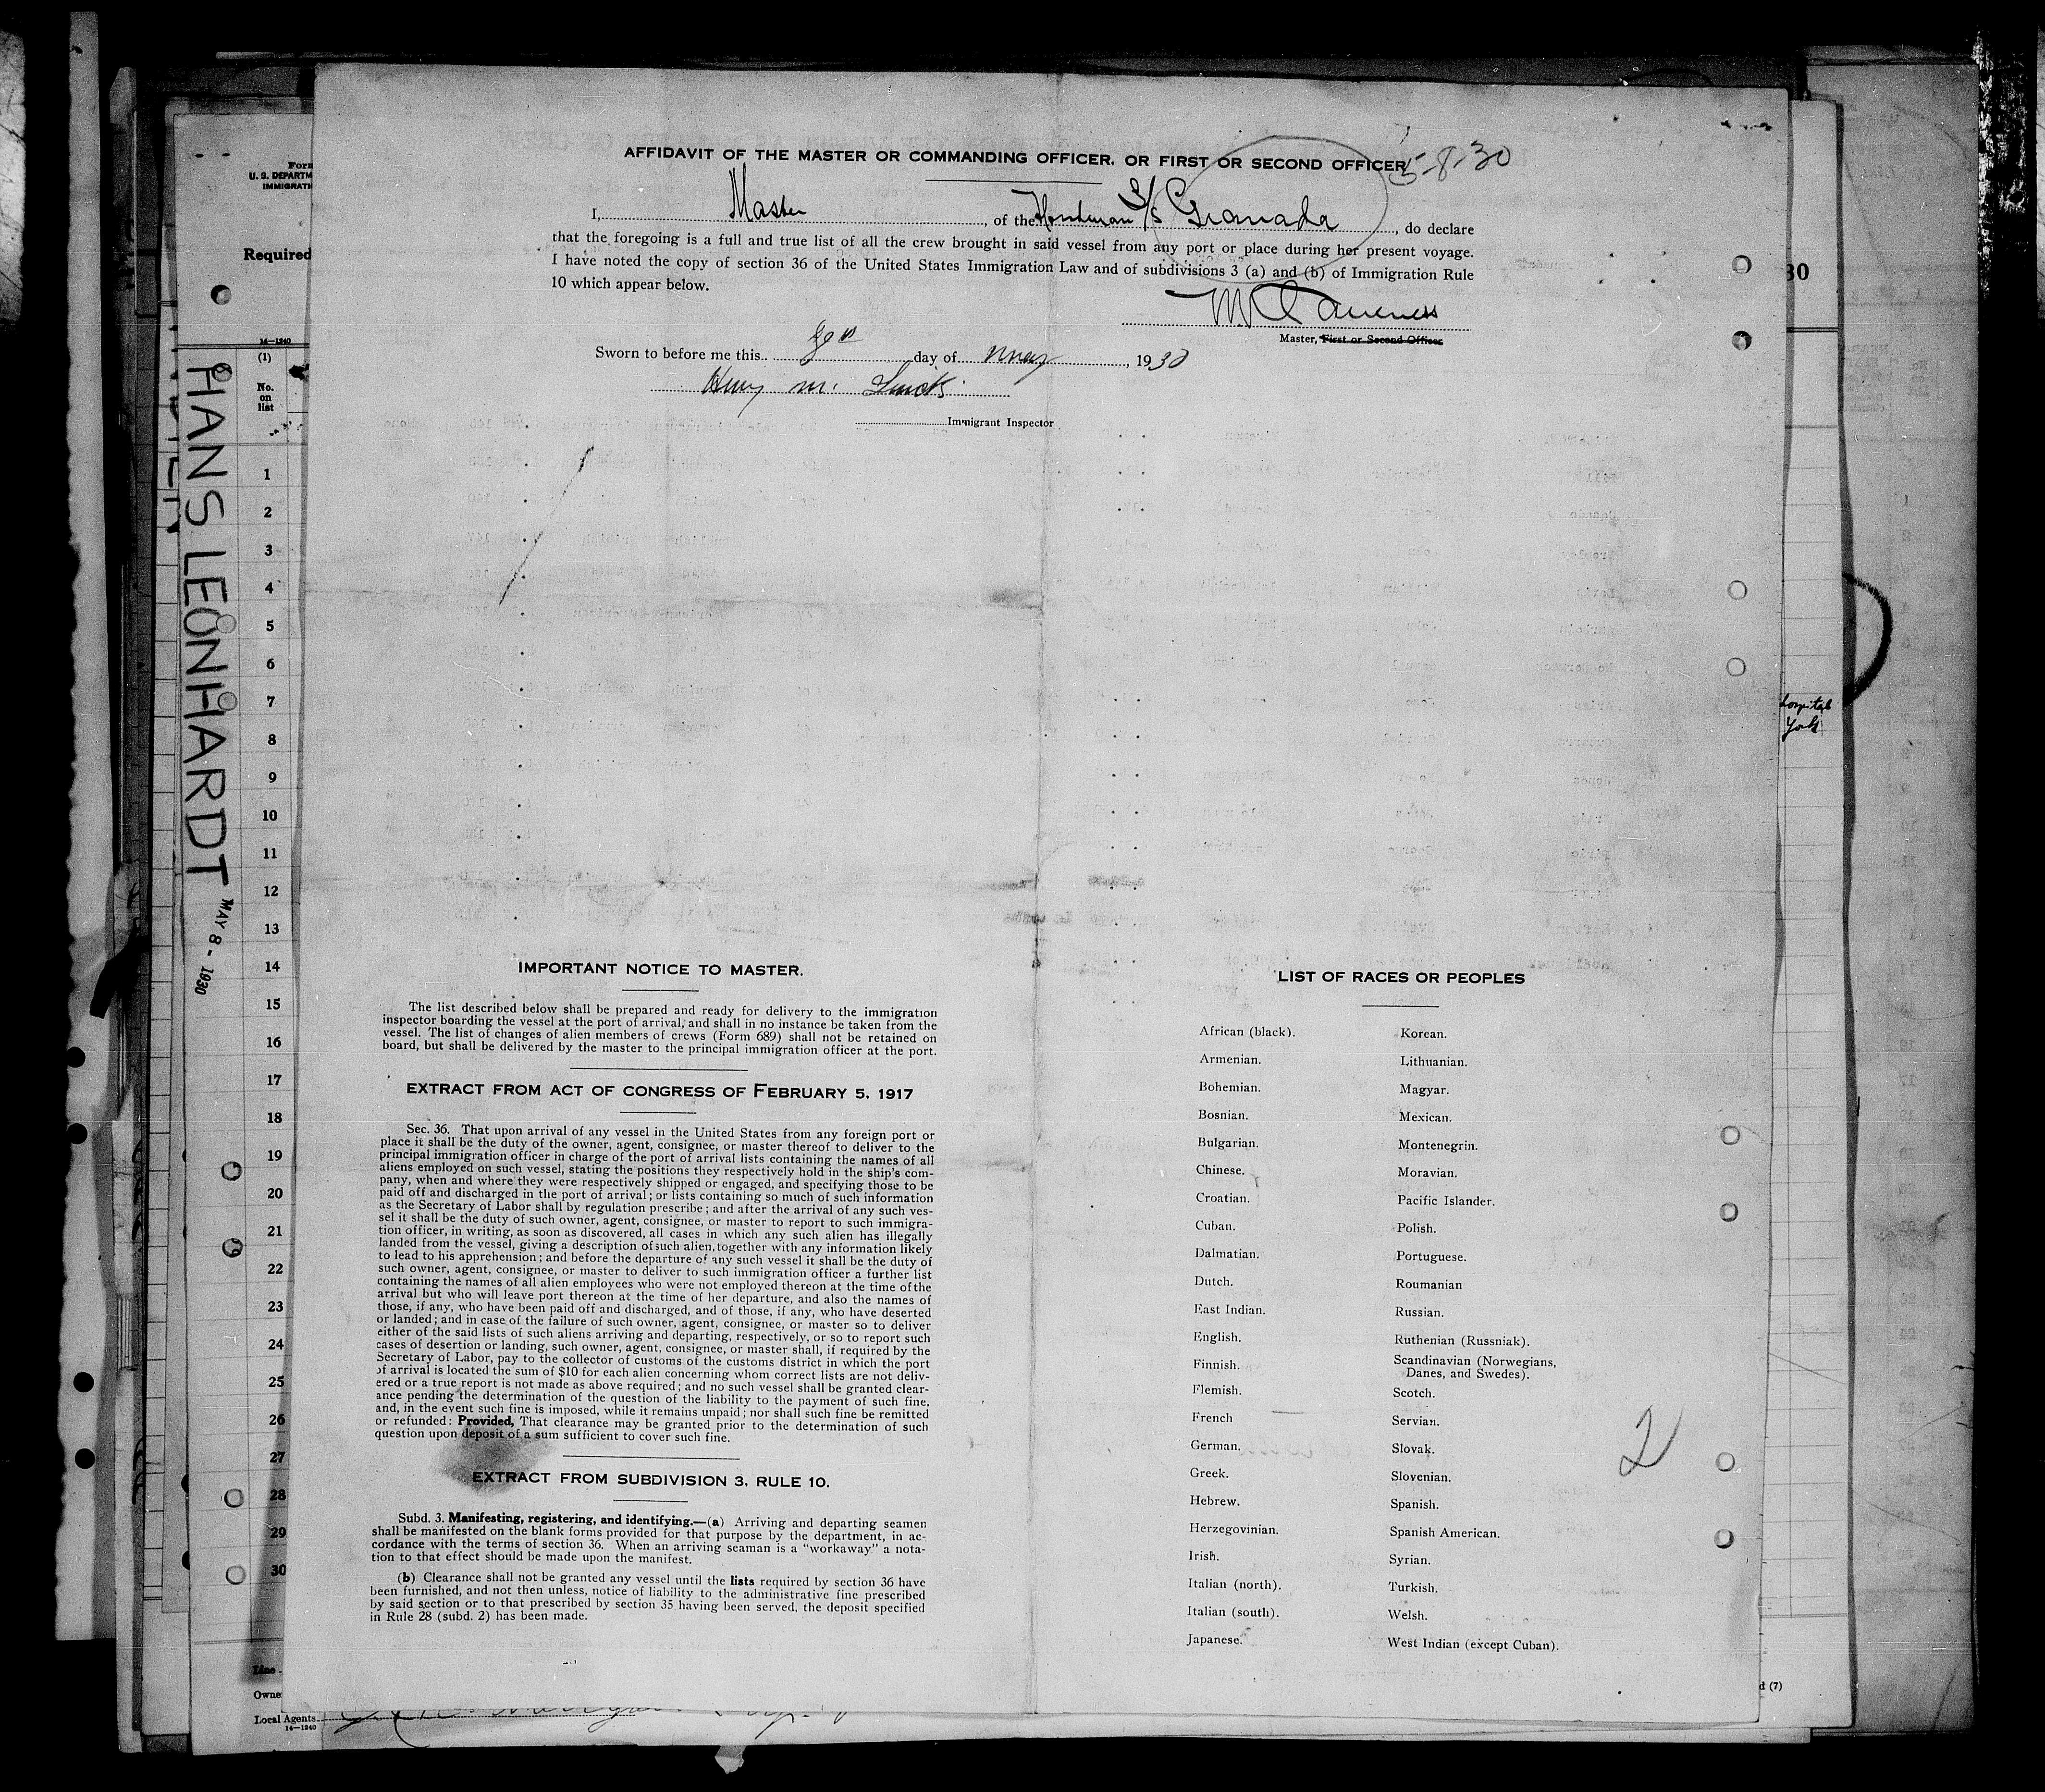 AFFIDAVIT OF THE MASTER OR COMMANDING OFFICER, OR FIRST OR SECOND OFFICER
5-8-30
I, Master, of the S/S Granada, do declare
that the foregoing is a full and true list of all the crew brought in said vessel from any port or place during her present voyage.
I have noted the copy of section 36 of the United States Immigration Law and of subdivisions 3 (a) and (b) of Immigration Rule
10 which appear below.
Master, First or Second Officer
Sworn to before me this day of May, 1930
Henry M.
Immigrant Inspector
IMPORTANT NOTICE TO MASTER.
The list described below shall be prepared and ready for delivery to the immigration
inspector boarding the vessel at the port of arrival, and shall in no instance be taken from the
vessel. The list of changes of alien members of crews (Form 689) shall not be retained on
board, but shall be delivered by the master to the principal immigration officer at the port.
EXTRACT FROM ACT OF CONGRESS OF FEBRUARY 5, 1917
Sec. 36. That upon arrival of any vessel in the United States from any foreign port or
place it shall be the duty of the owner, agent, consignee, or master thereof to deliver to the
principal immigration officer in charge of the port of arrival lists containing the names of all
aliens employed on such vessel, stating the positions they respectively hold in the ship's com-
pany, when and where they were respectively shipped or engaged, and specifying those to be
paid off and discharged in the port of arrival; or lists containing so much of such information
as the Secretary of Labor shall by regulation prescribe; and after the arrival of any such ves-
sel it shall be the duty of such owner, agent, consignee, or master to report to such immigra-
tion officer, in writing, as soon as discovered, all cases in which any such alien has illegally
landed from the vessel, giving a description of such alien, together with any information likely
to lead to his apprehension; and before the departure of any such vessel it shall be the duty of
such owner, agent, consignee, or master to deliver to such immigration officer a further list
containing the names of all alien employees who were not employed thereon at the time of the
arrival but who will leave port thereon at the time of her departure, and also the names of
those, if any, who have been paid off and discharged, and of those, if any, who have deserted
or landed; and in case of the failure of such owner, agent, consignee, or master so to deliver
either of the said lists of such aliens arriving and departing, respectively, or so to report such
cases of desertion or landing, such owner, agent, consignee, or master shall, if required by the
Secretary of Labor, pay to the collector of customs of the customs district in which the port
of arrival is located the sum of $10 for each alien concerning whom correct lists are not deliv-
ered or a true report is not made as above required; and no such vessel shall be granted clear-
ance pending the determination of the question of the liability to the payment of such fine,
and, in the event such fine is imposed, while it remains unpaid; nor shall such fine be remitted
or refunded: Provided, That clearance may be granted prior to the determination of such
question upon deposit of a sum sufficient to cover such fine.
EXTRACT FROM SUBDIVISION 3, RULE 10.
Subd. 3. Manifesting, registering, and identifying.—(a) Arriving and departing seamen
shall be manifested on the blank forms provided for that purpose by the department, in ac-
cordance with the terms of section 36. When an arriving seaman is a "workaway" a nota-
tion to that effect should be made upon the manifest.
(b) Clearance shall not be granted any vessel until the lists required by section 36 have
been furnished, and not then unless, notice of liability to the administrative fine prescribed
by said section or to that prescribed by section 35 having been served, the deposit specified
in Rule 28 (subd. 2) has been made.
LIST OF RACES OR PEOPLES
African (black).
Armenian.
Bohemian.
Bosnian.
Bulgarian.
Chinese.
Croatian.
Cuban.
Dalmatian.
Dutch.
East Indian.
English.
Finnish.
Flemish.
French
German.
Greek.
Hebrew.
Herzegovinian.
Irish.
Italian (north).
Italian (south).
Japanese.
Korean.
Lithuanian.
Magyar.
Mexican.
Montenegrin.
Moravian.
Pacific Islander.
Polish.
Portuguese.
Roumanian
Russian.
Ruthenian (Russniak).
Scandinavian (Norwegians,
Danes, and Swedes).
Scotch.
Servian.
Slovak.
Slovenian.
Spanish.
Spanish American.
Syrian.
Turkish.
Welsh.
West Indian (except Cuban).
2
Form
U. S. DEPARTM
IMMIGRATI
Required
14—1240
(1)
No.
on
list
1
2
3
4
5
6
7
8
9
10
11
12
13
14
15
16
17
18
19
20
21
22
23
24
25
26
27
28
29
30
Line
Owne
Local Agents
14—1240
HANS LEONHARDT
MAY 8 - 1930
30
hospital
York
d (7)